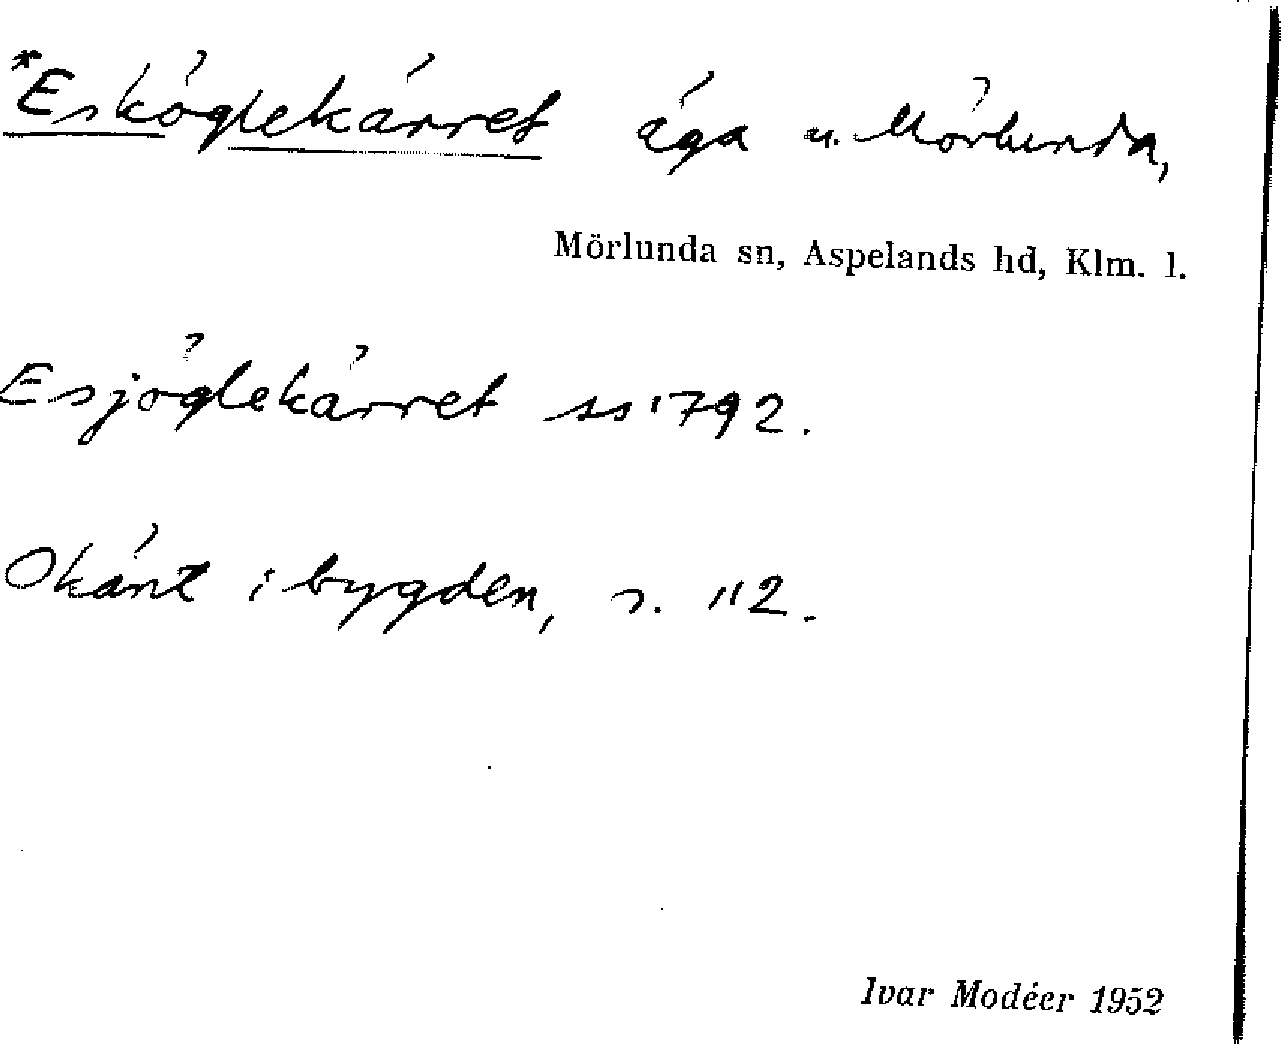 *Esköglekärret äga u. Mörlunda,
Mörlunda sn, Aspelands hd, Klm. l.
Esjöglekärret ss 1792.
Okänt i bygden, s. 112.
Ivar Modéer 1952